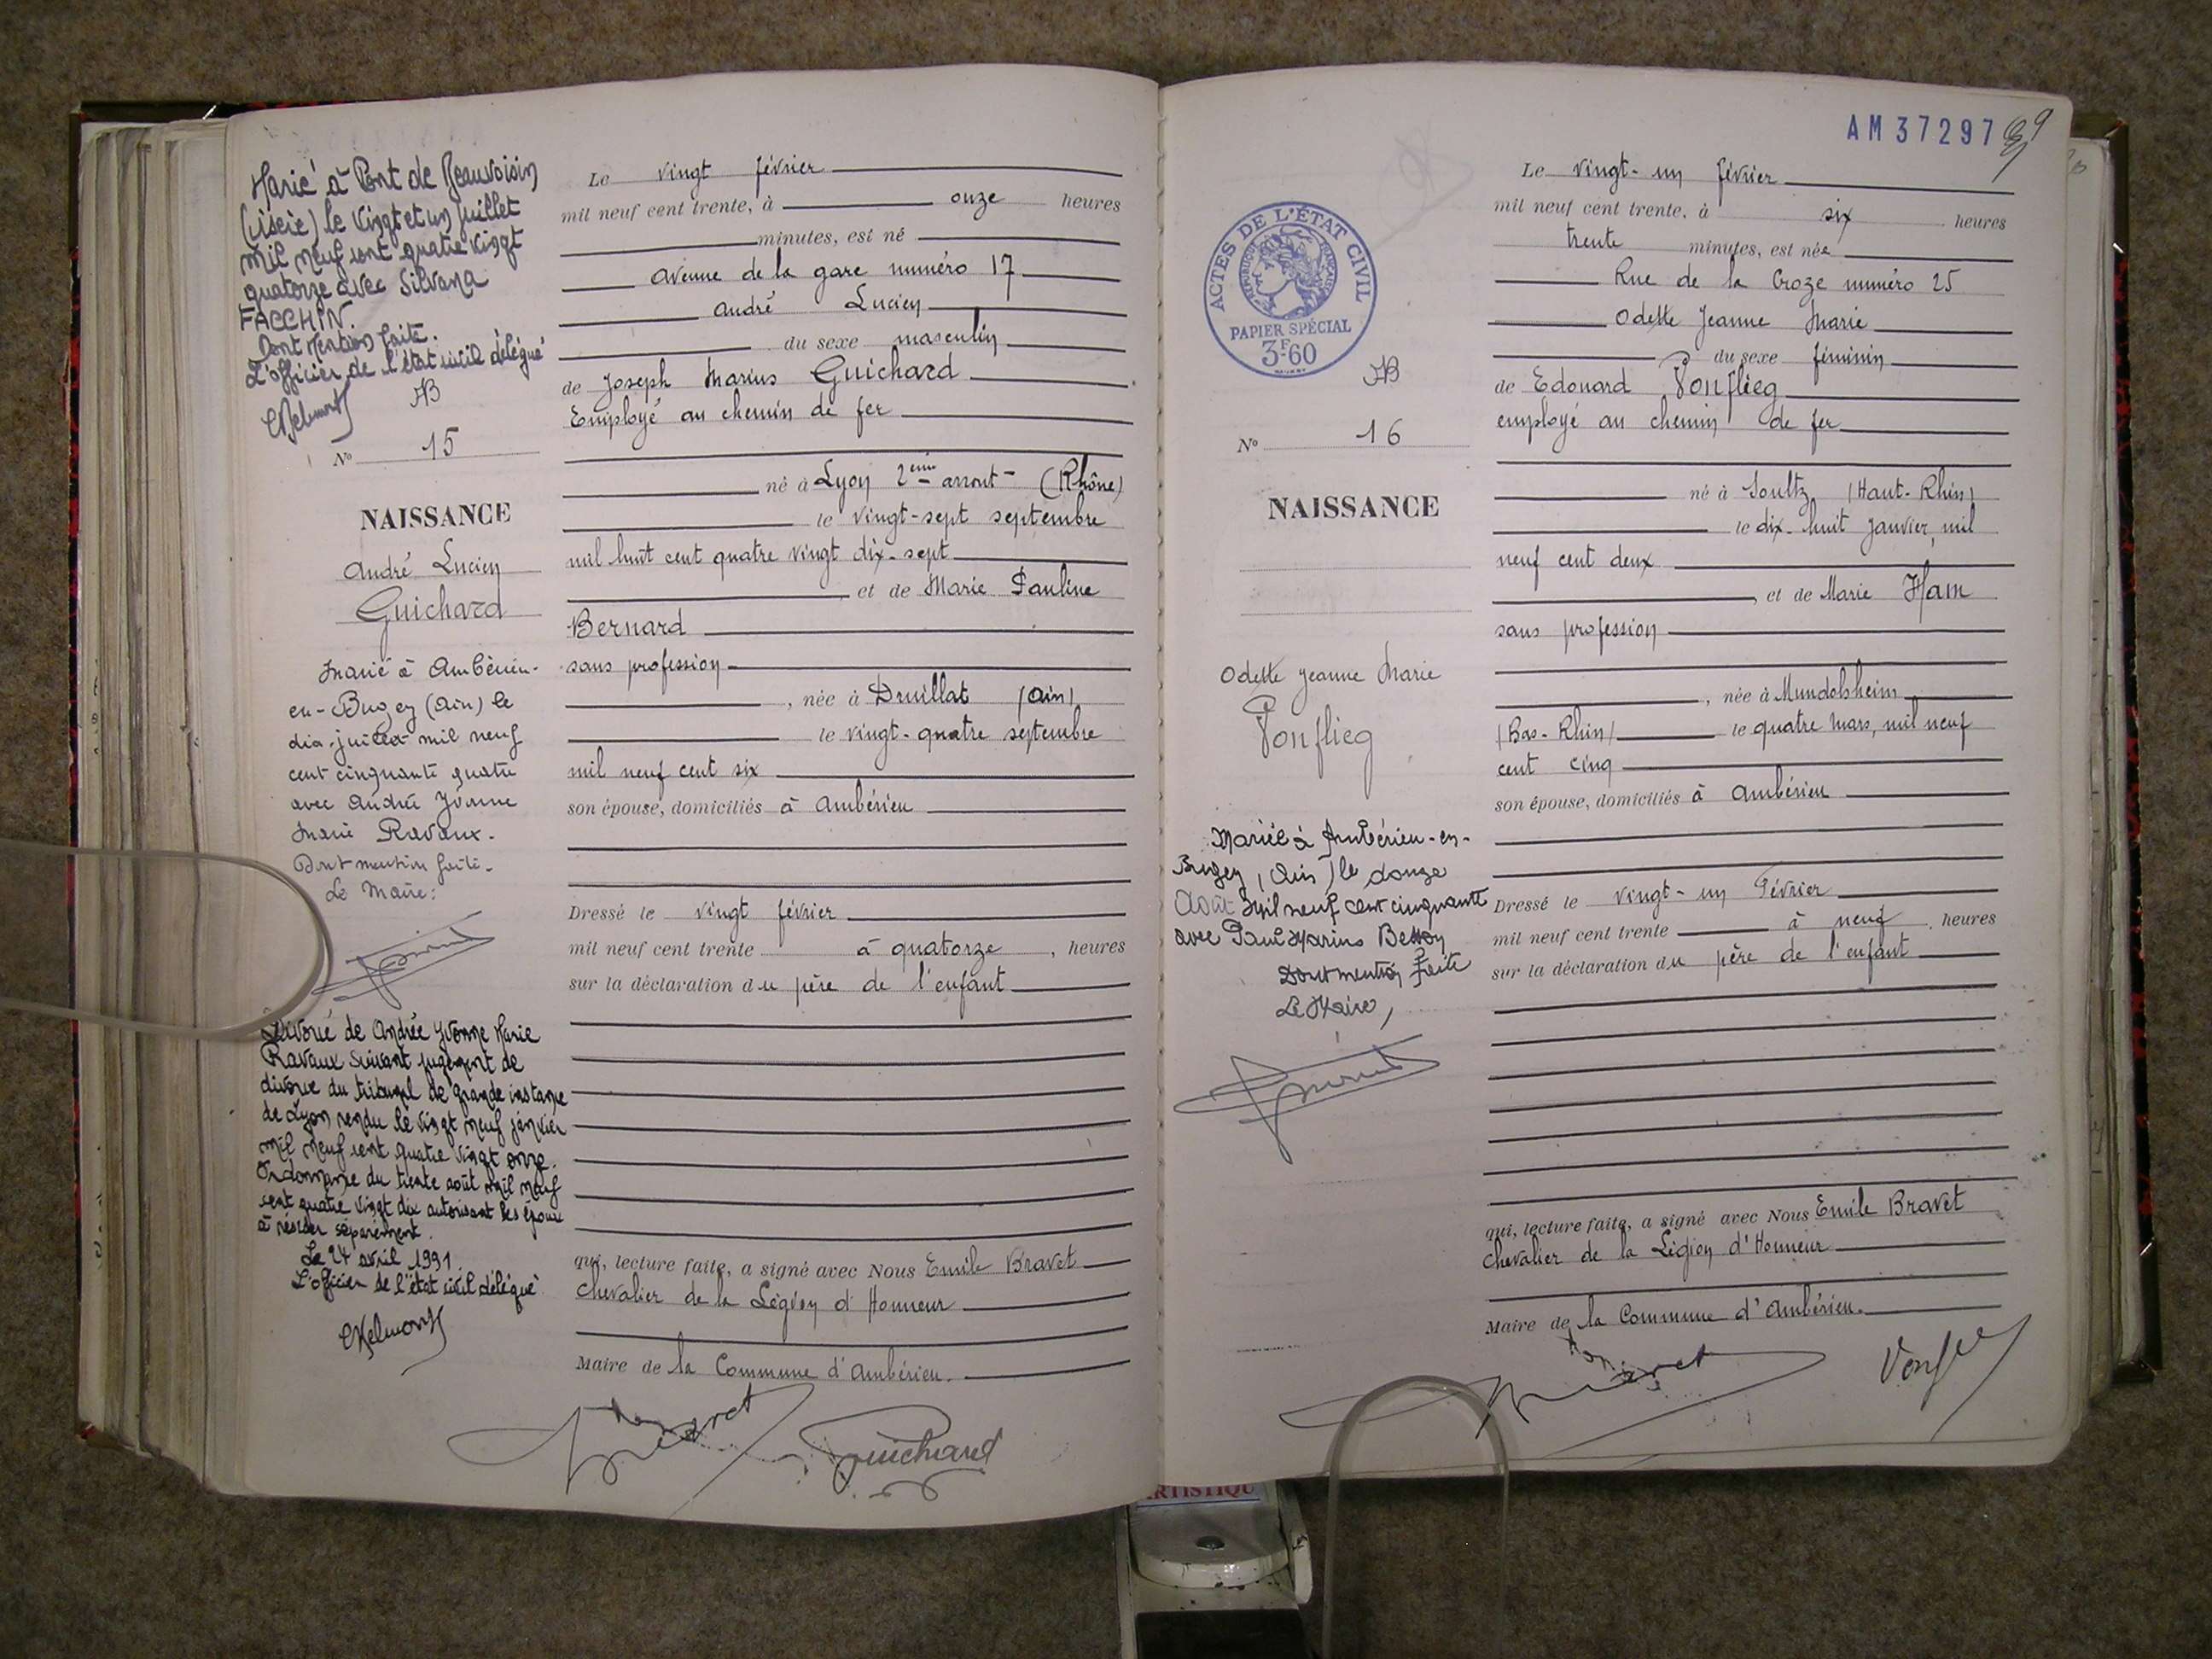 Marié à Pont de Beauvoisin
(Isère) le vingt et un juillet
mil neuf cent quatre vingt
quatorze avec Silvana
FACCHIN.
Dont mention faite.
L'officier de l'état civil délégué
AB
N° 15
NAISSANCE
André Lucien
Guichard
Marié à Ambérieu-
en-Bugey (Ain) le
mil neuf
cent cinquante quatre
avec Andrée Yvonne
Marie Ravaux.
Dont mention faite.
Le Maire:
Divorcé de Andrée Yvonne Marie
Ravaux suivant jugement de
divorce du tribunal de grande instance
de Lyon rendu le vingt neuf janvier
mil neuf cent quatre vingt onze.
Ordonnance du trente août mil neuf
cent quatre vingt dix autorisant les époux
à résider séparément.
Le 24 avril 1991.
L'officier de l'état civil délégué
Le vingt février
mil neuf cent trente, à onze heures
minutes, est né
avenue de la gare numéro 17
André Lucien
du sexe masculin
de Joseph Marius Guichard
Employé au chemin de fer
né à Lyon 2ème arront- (Rhône)
le vingt-sept septembre
mil huit cent quatre vingt dix-sept
et de Marie Pauline
Bernard
sans profession
, née à Druillat (Ain)
le vingt-quatre septembre
mil neuf cent six
son épouse, domiciliés à Ambérieu
Dressé le vingt février
mil neuf cent trente à quatorze, heures
sur la déclaration du père de l'enfant
qui, lecture faite, a signé avec Nous Emile Bravet
Chevalier de la Légion d'Honneur
Maire de la Commune d'Ambérieu.
Guichard
AM 37297
ACTES DE L'ÉTAT CIVIL
RÉPUBLIQUE FRANÇAISE
PAPIER SPÉCIAL
3F60
AB
N° 16
NAISSANCE
Odette Jeanne Marie
Vonflieg
Mariée à Ambérieu-en-
Bugey (Ain) le douze
Août mil neuf cent cinquante
avec Paul Marius
Dont mention faite
Le Maire,
Le vingt-un février
mil neuf cent trente, à six heures
trente minutes, est née
Rue de la Croze numéro 25
Odette Jeanne Marie
du sexe féminin
de Edouard Vonflieg
employé au chemin de fer
né à Soultz (Haut-Rhin)
le dix-huit janvier, mil
neuf cent deux
, et de Marie Ham
sans profession
, née à Mundolsheim
(Bas-Rhin) le quatre mars, mil neuf
cent cinq
son épouse, domiciliés à Ambérieu
Dressé le vingt-un Février
mil neuf cent trente à neuf, heures
sur la déclaration du père de l'enfant
qui, lecture faite, a signé avec Nous Emile Bravet
Chevalier de la Légion d'Honneur
Maire de la Commune d'Ambérieu.